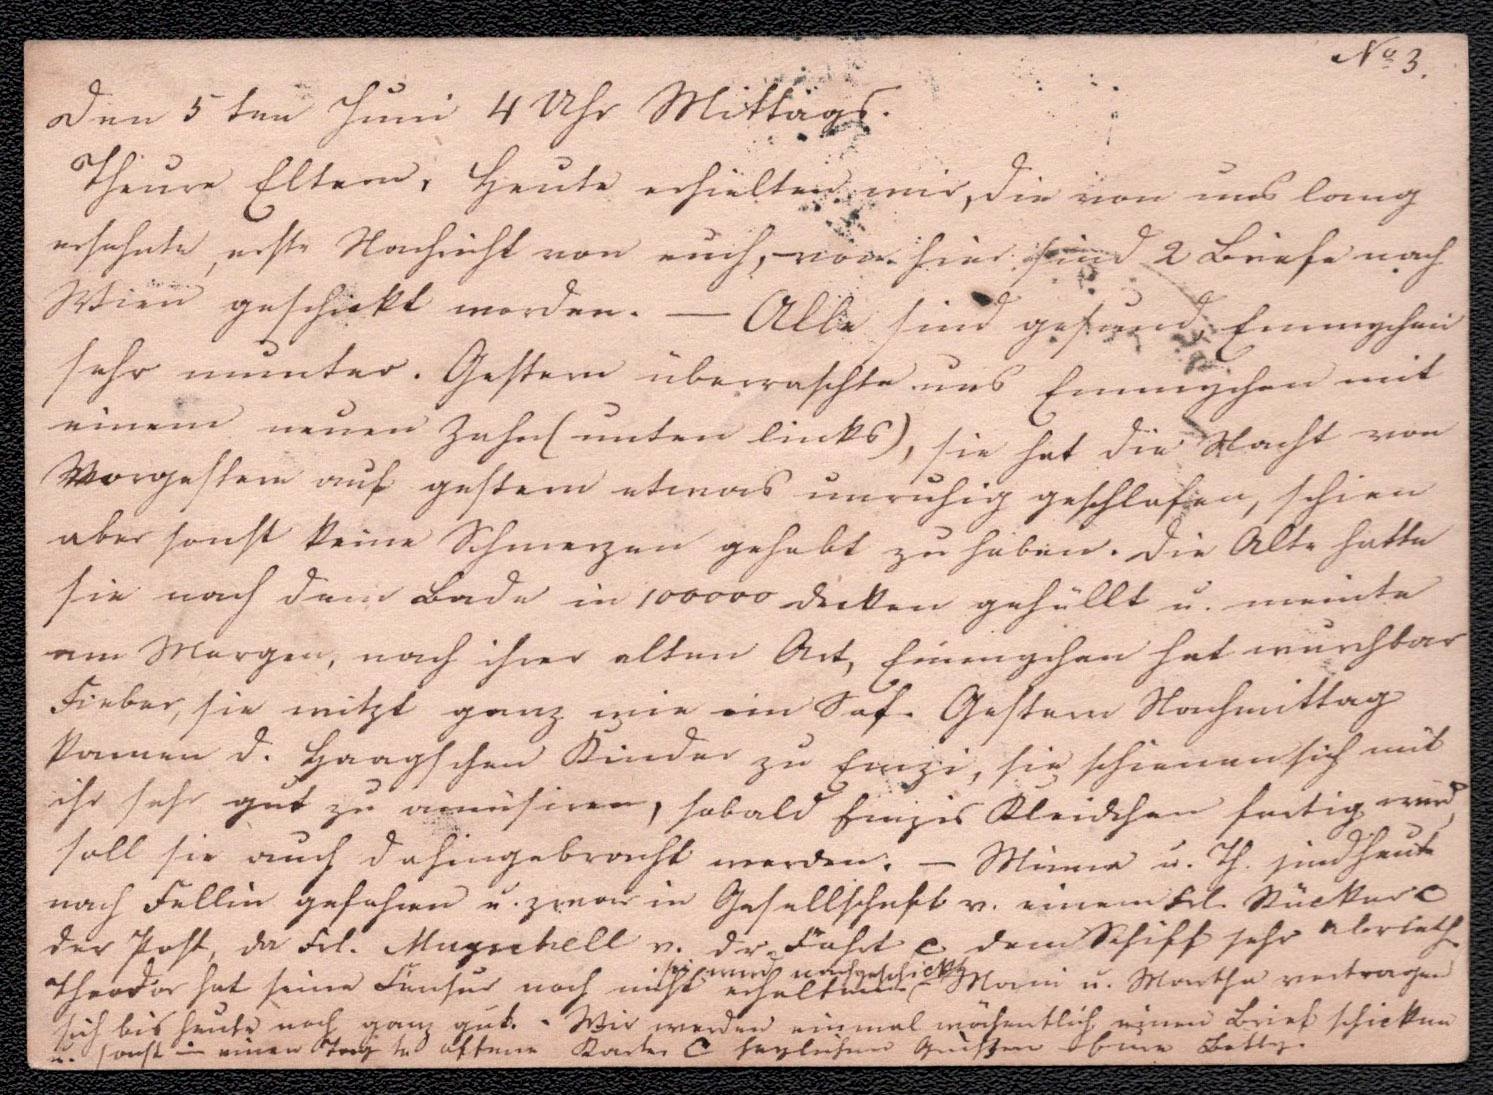 No 3.
Den 5ten Juni 4 Uhr Mittags.
Theure Eltern, Heute erhielten wir, die von uns lang
ersehnte, erste Nachricht von euch, von hier sind 2 Briefe nach
Wien geschickt worden. — Alle sind gesund, Emmychen
sehr munter. Gestern überraschte uns Emmychen mit
einem neuen Zahn (unten links), sie hat die Nacht von
Vorgestern auf gestern etwas unruhig geschlafen, schien
aber sonst keine Schmerzen gehabt zu haben. Die Alte hatte
sie nach dem Bade in 100000 decken gehüllt u. meinte
am Morgen, nach ihrer alten Art, Emmychen hat wurchbar
Fieber, sie witzt ganz wie ein Saf. Gestern Nachmittag
kamen d. Haagschen Kinder zu Emzi, sie schienen sich mit
ihr sehr gut zu amüsiren, sobald Emzis Kleidchen fertig wird,
soll sie auch dahingebracht werden. — Minna u. Th. sind heute
nach Fellin gefahren u. zwar in Gesellschaft v. einem Frl. Stücker
der Post, da Frl. v. dr. Fahrt dem Schiff sehr abrieth.
Theodor hat seine noch nicht erhalten
sie wird nachgeschickt
Marie u. Martha vertragen
sich bis heute noch ganz gut. - Wir werden einmal wöchentlich einen Brief schicken
u. sonst einen Tag offene Karte herzlichen Grüssen eure Betty.